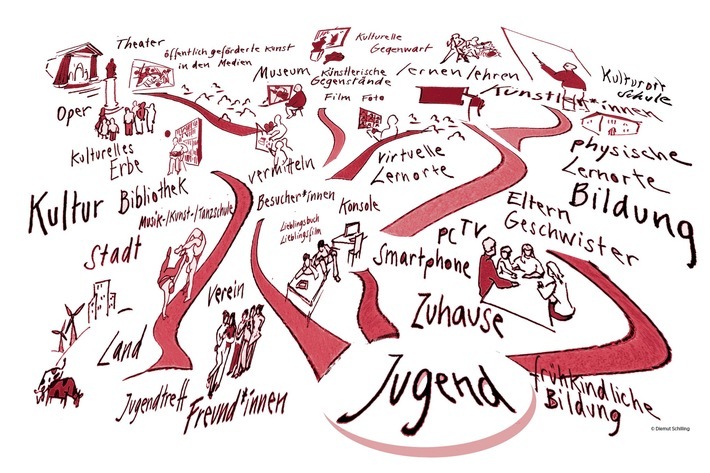 Theater
öffentlich geförderte Kunst
in den Medien
Kulturelle
Gegenwart
Museum
Künstlerische
Gegenstände
Film Foto
lernen/lehren
Künstler*innen
Kulturort
Schule
Oper
Kulturelles
Erbe
vermitteln
virtuelle
Lernorte
physische
Lernorte
Bildung
Kultur
Bibliothek
Musik-/Kunst-/Tanzschule
Besucher*innen
Lieblingsbuch
Lieblingsfilm
Konsole
PC TV
Smartphone
Eltern
Geschwister
Stadt
Verein
Zuhause
Land
Jugendtreff
Freund*innen
Jugend
frühkindliche
Bildung
© Diemut Schilling